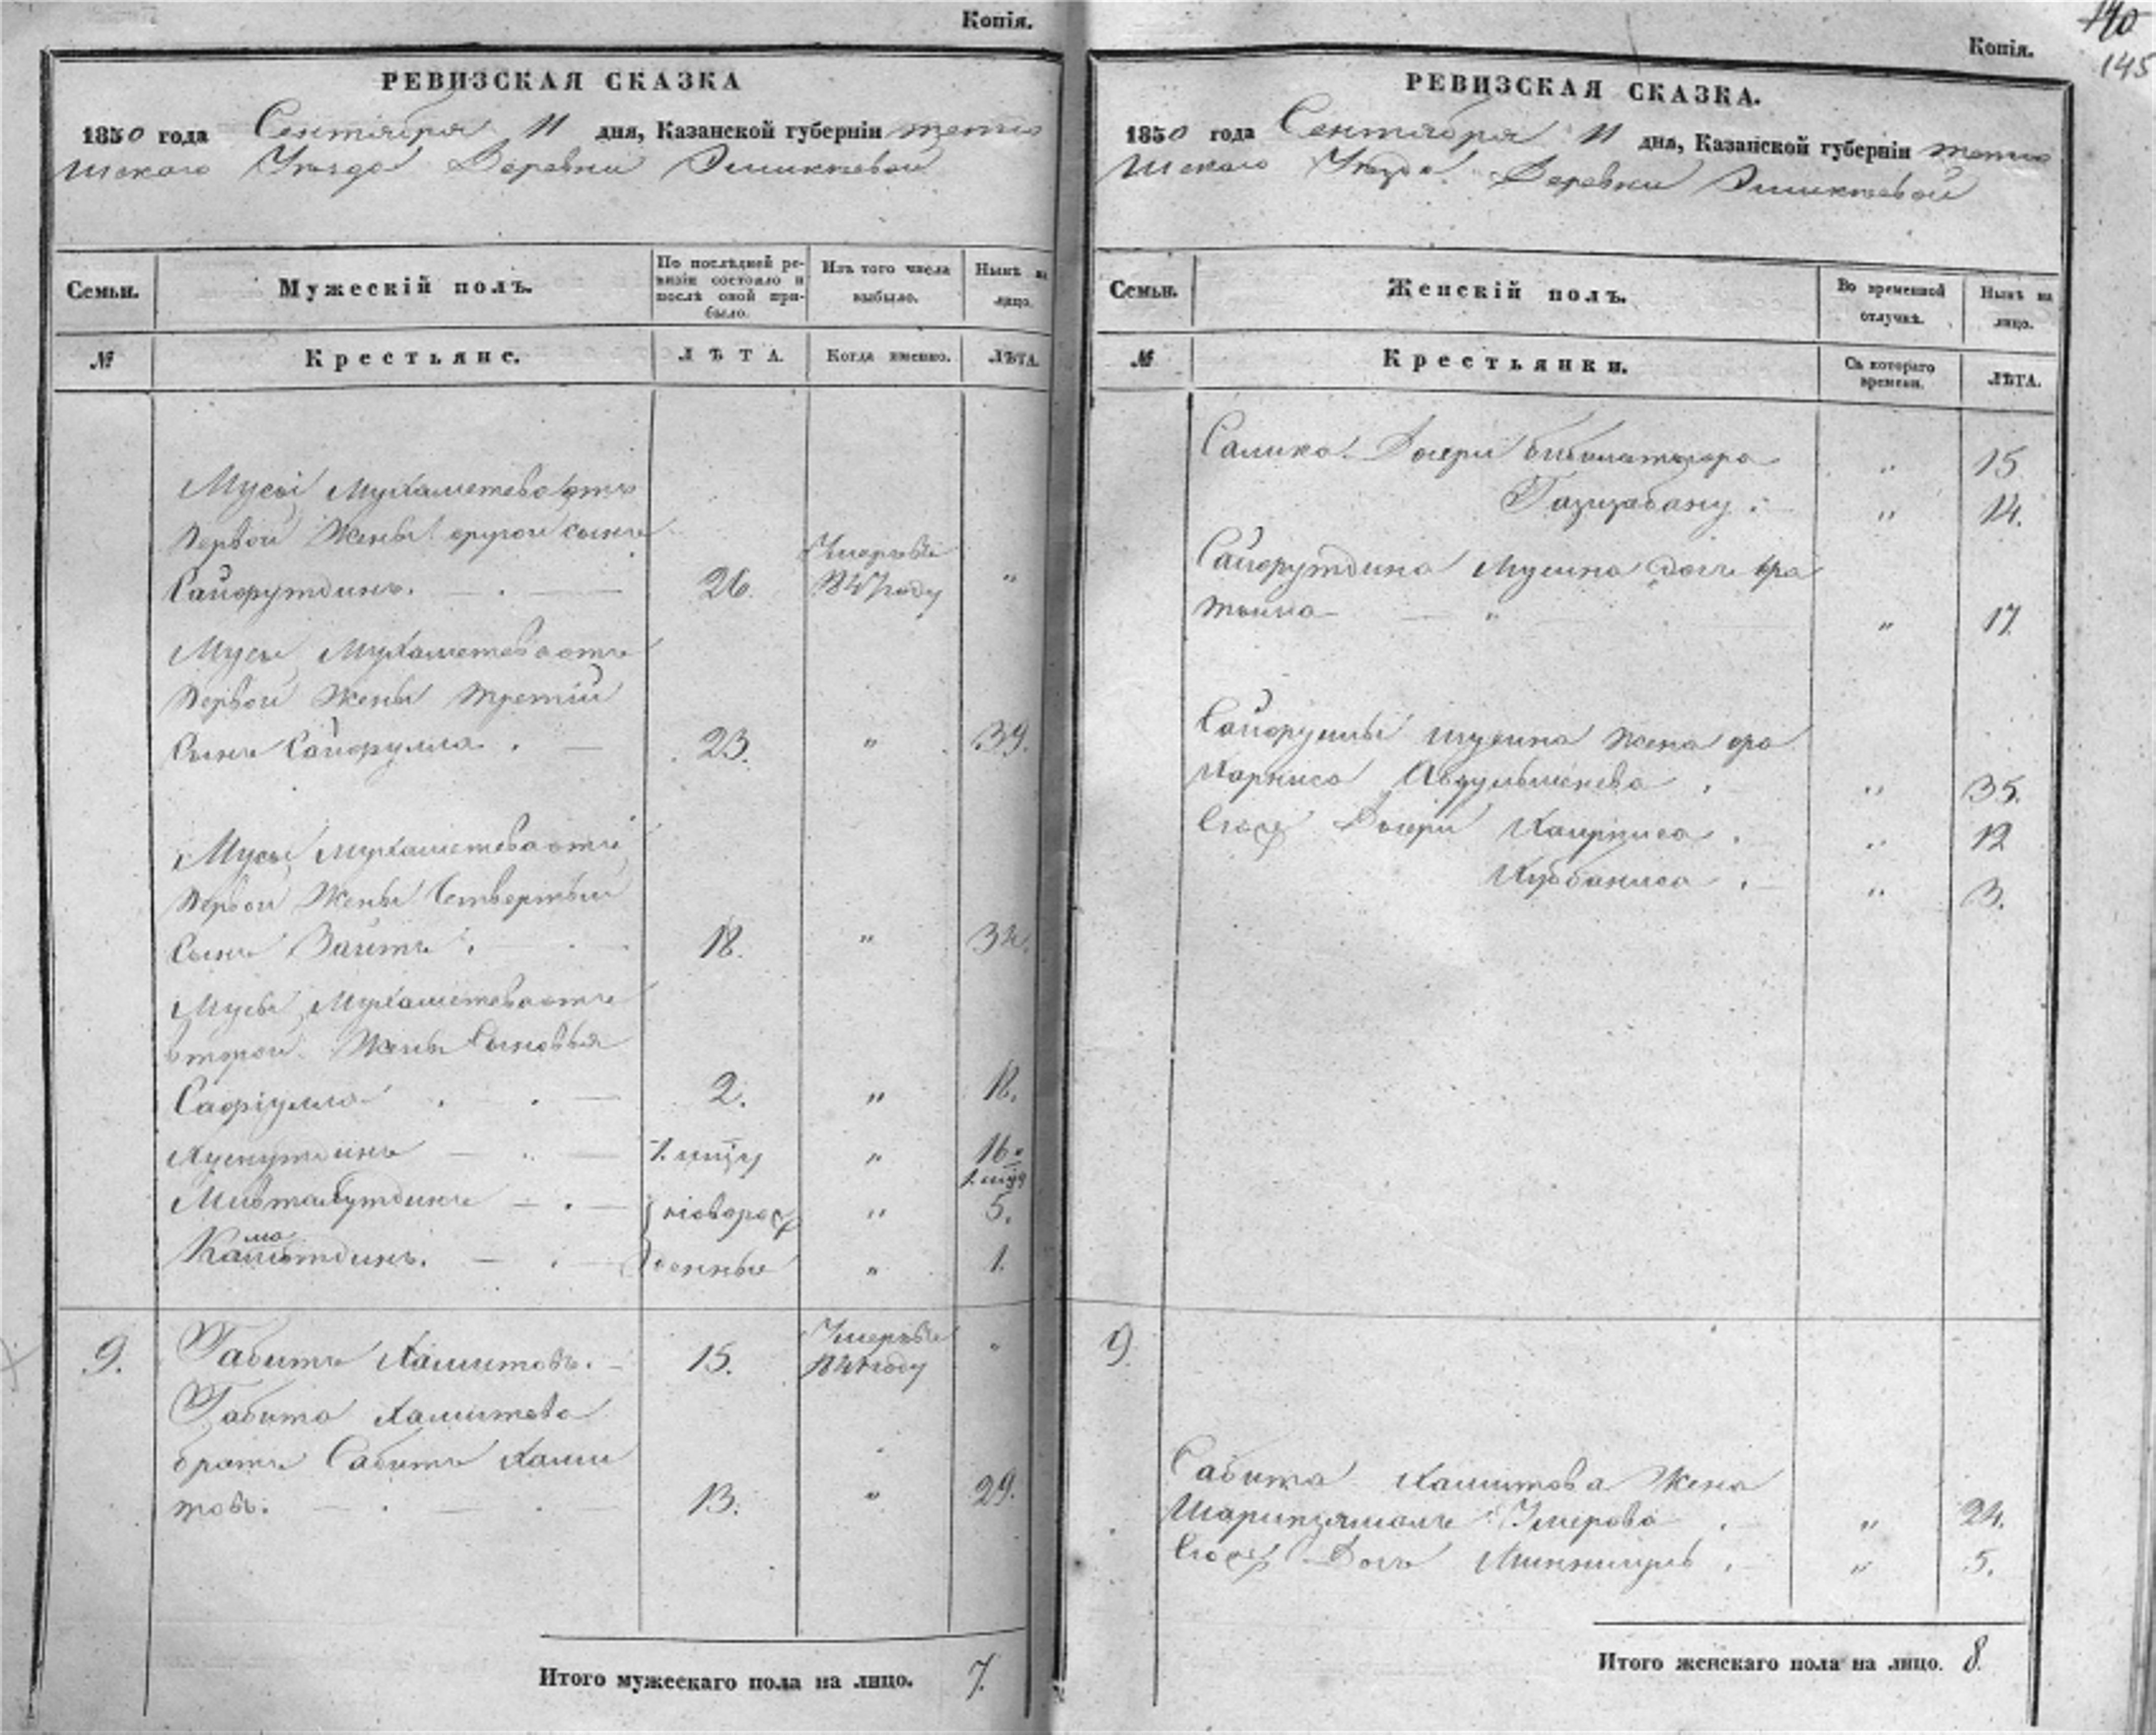 Копія.
РЕВИЗСКАЯ СКАЗКА
1850 года Сентября 11 дня, Казанской губерніи тетю
шскаго Уезда Деревни
Семьи.
Мужескій полъ.
По послѣдней ре-
визіи состояло и
послѣ оной при-
было.
Изъ того числа
выбыло.
Нынѣ на
лицо.
№
Крестьяне.
ЛѢТА.
Когда именно.
ЛѢТА.
Мусы Мухаметева отъ
первой Жены другой сынъ
Сайфутдинъ. 26. Умеръ въ
1847 году "
Мусы Мухаметева отъ
первой Жены третій
Сынъ Сайфулла. 23. " 39.
Мусы Мухаметева отъ
первой Жены Четвертый
Сынъ Заитъ. 18. " 34.
Мусы Мухаметева отъ
второй Жены Сыновья
Сафіулла 2. " 18.
" 16
Мифтахутдинъ новорож " 5.
Камалетдинъ. денные " 1.
9. Габитъ Хамитовъ. 15. Умеръ въ
году "
Габита Хамитова
братъ Сабитъ Хами
товъ. 13. " 29.
Итого мужескаго пола на лицо. 7.
140
145
Копія.
РЕВИЗСКАЯ СКАЗКА.
1850 года Сентября 11 дня, Казанской губерніи тетю
шскаго Уезда Деревни
Семьи.
Женскій полъ.
Во временной
отлучкѣ.
Нынѣ на
лицо.
№
Крестьянки.
Съ котораго
времени.
ЛѢТА.
Дочери " 15
Газизабану. " 14.
Сайфутдина Мусина дочь Фа
тыма " 17.
Сайфуллы Мусина жена Фа
" 35.
Его Дочери " 12
Курбаниса " 3.
9.
Сабита Хамитова Жена
Умерова " 24.
Его Дочь " 5.
Итого женскаго пола на лицо. 8.